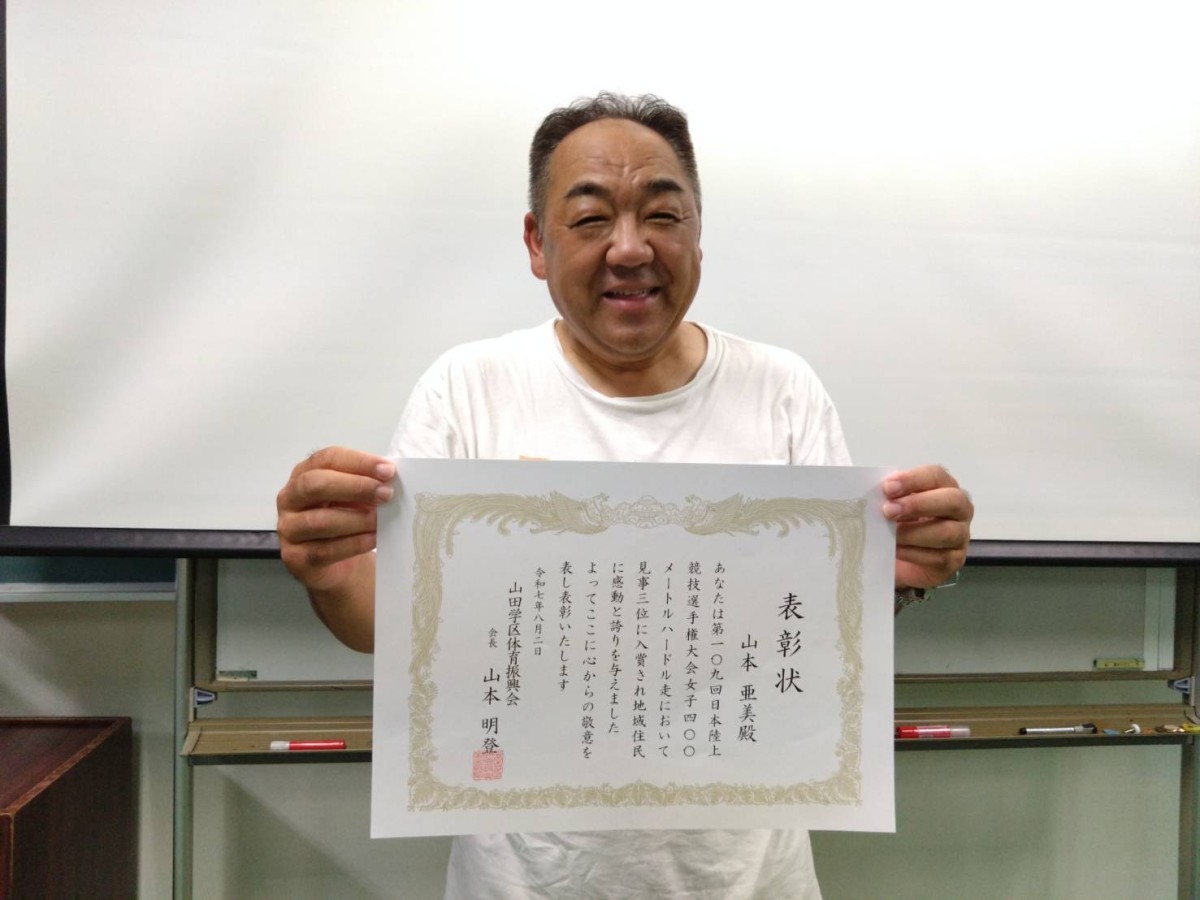 表彰状
山本 亜美殿
あなたは第一〇九回日本陸上
競技選手権大会女子四〇〇
メートルハードル走において
見事三位に入賞され地域住民
に感動と誇りを与えました
よってここに心からの敬意を
表し表彰いたします
令和七年八月二日
山田学区体育振興会
会長 山本 明登